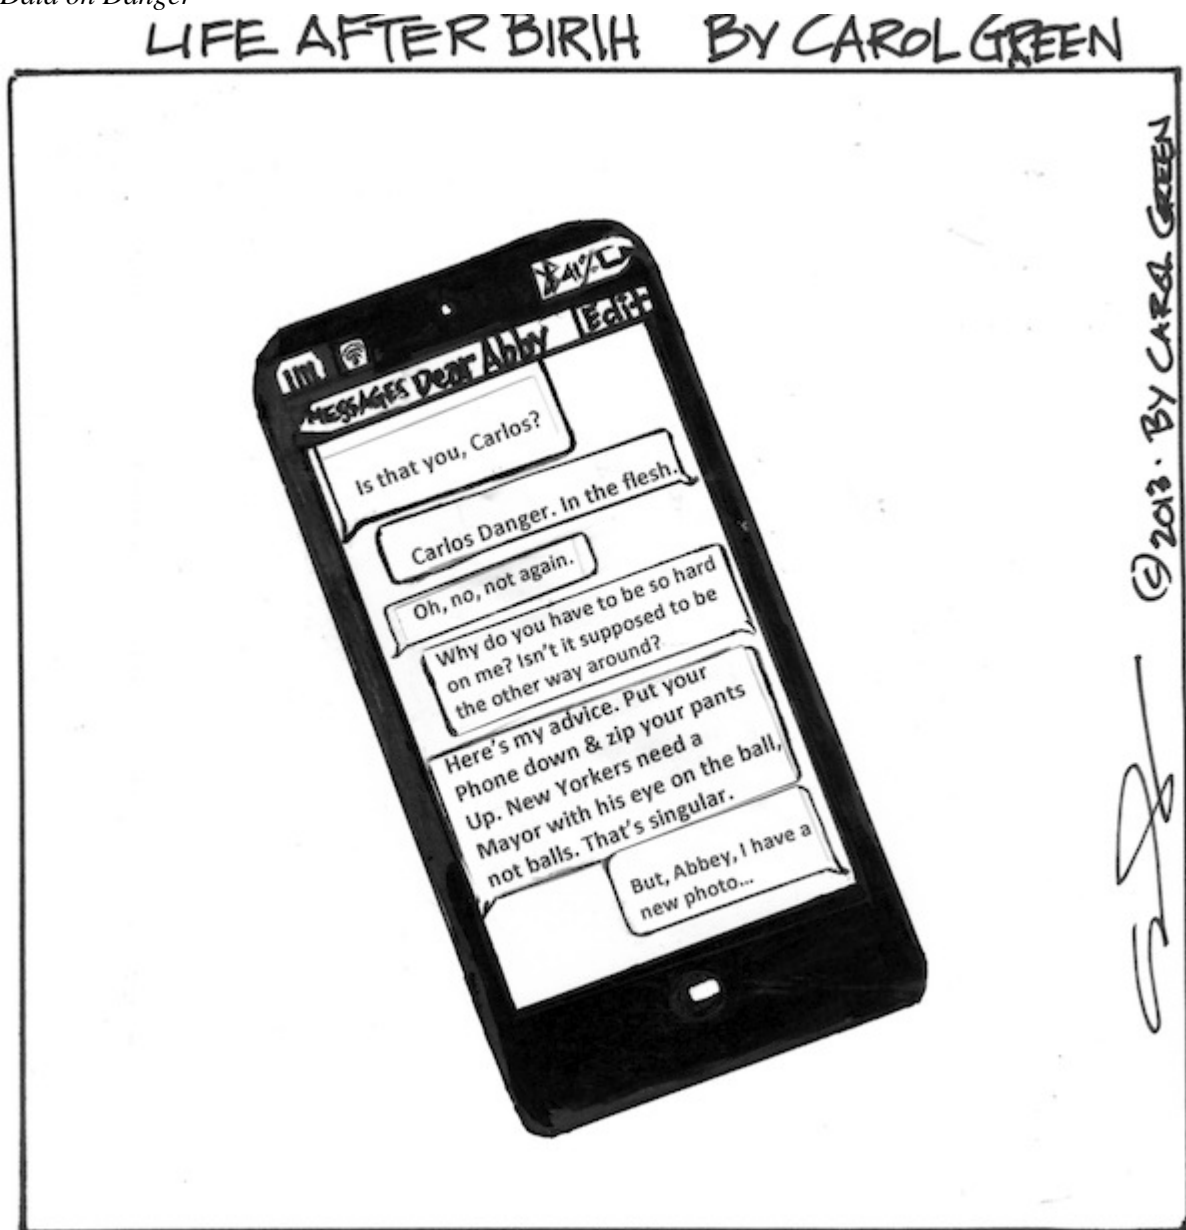 Data on Danger
LIFE AFTER BIRTH BY CAROL GREEN
41%
MESSAGES Dear Abby Edit
Is that you, Carlos?
Carlos Danger. In the flesh.
Oh, no, not again.
Why do you have to be so hard
on me? Isn't it supposed to be
the other way around?
Here's my advice. Put your
Phone down & zip your pants
Up. New Yorkers need a
Mayor with his eye on the ball,
not balls. That's singular.
But, Abbey, I have a
new photo...
© 2013. BY CAROL GREEN